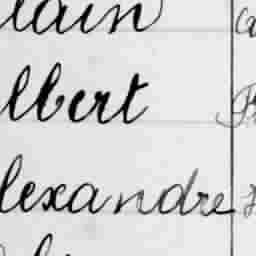 lain
lbert
lexandre